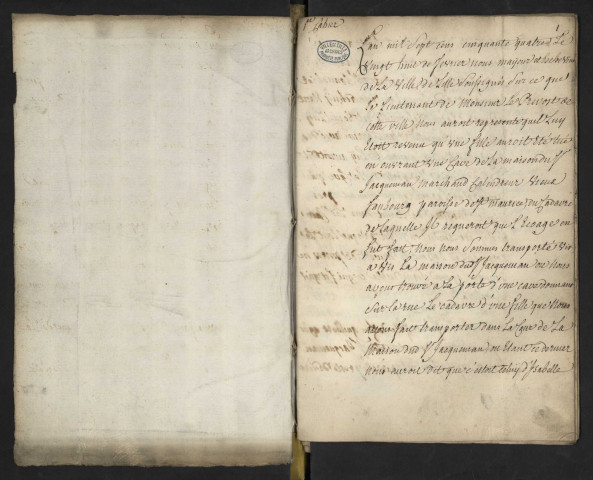 1
L'an mil sept cens cinquante quatre Le
vingt huit de fevrier nous majeur et eschevins
de La Ville de Lille soussignés sur ce que
Le Lieutenant de Monsieur Le Prevost de
cette ville nous auroit representé quil Luy
etoit revenu qu'une fille auroit eté tuée
en ouvrant une Cave de La maison du Sr
Jacqueman marchand Calendreur vieux
faubourg paroisse de St maurice, du Cadavre
de Laquelle Il requeroit que L'Ecoage en
fut fait, Nous nous sommes transporté vis
a vis La maison dud Sr Jacqueman ou nous
avons trouvé a La porte d'une cave donnant
sur La rue Le cadavre d'une fille que nous
avons fait transporter dans La Cour de La
Maison dud Sr Jacqueman, ou etant ce dernier
nous auroit dit que c'etoit celuy d'Isabelle